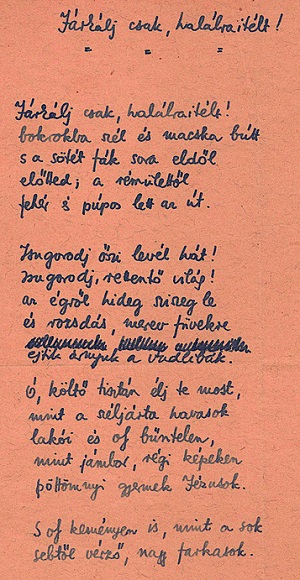 Járkálj csak, halálraitélt!
Járkálj csak, halálraitélt!
bokrokba szél és macska bútt
s a sötét fák sora eldől
előtted; a rémülettől
fehér s púpos lett az út.
Zsugorodj őszi levél hát!
zsugorodj, rettentő világ!
az égről hideg sziszeg le
és rozsdás, merev füvekre
ejtik árnyuk a vadlibák.
Ó, költő tisztán élj te most,
mint a széljárta havasok
lakói és oly bűntelen,
mint jámbor, régi képeken
pöttömnyi gyermek Jézusok.
S oly keményen is, mint a sok
sebtől vérző, nagy farkasok.